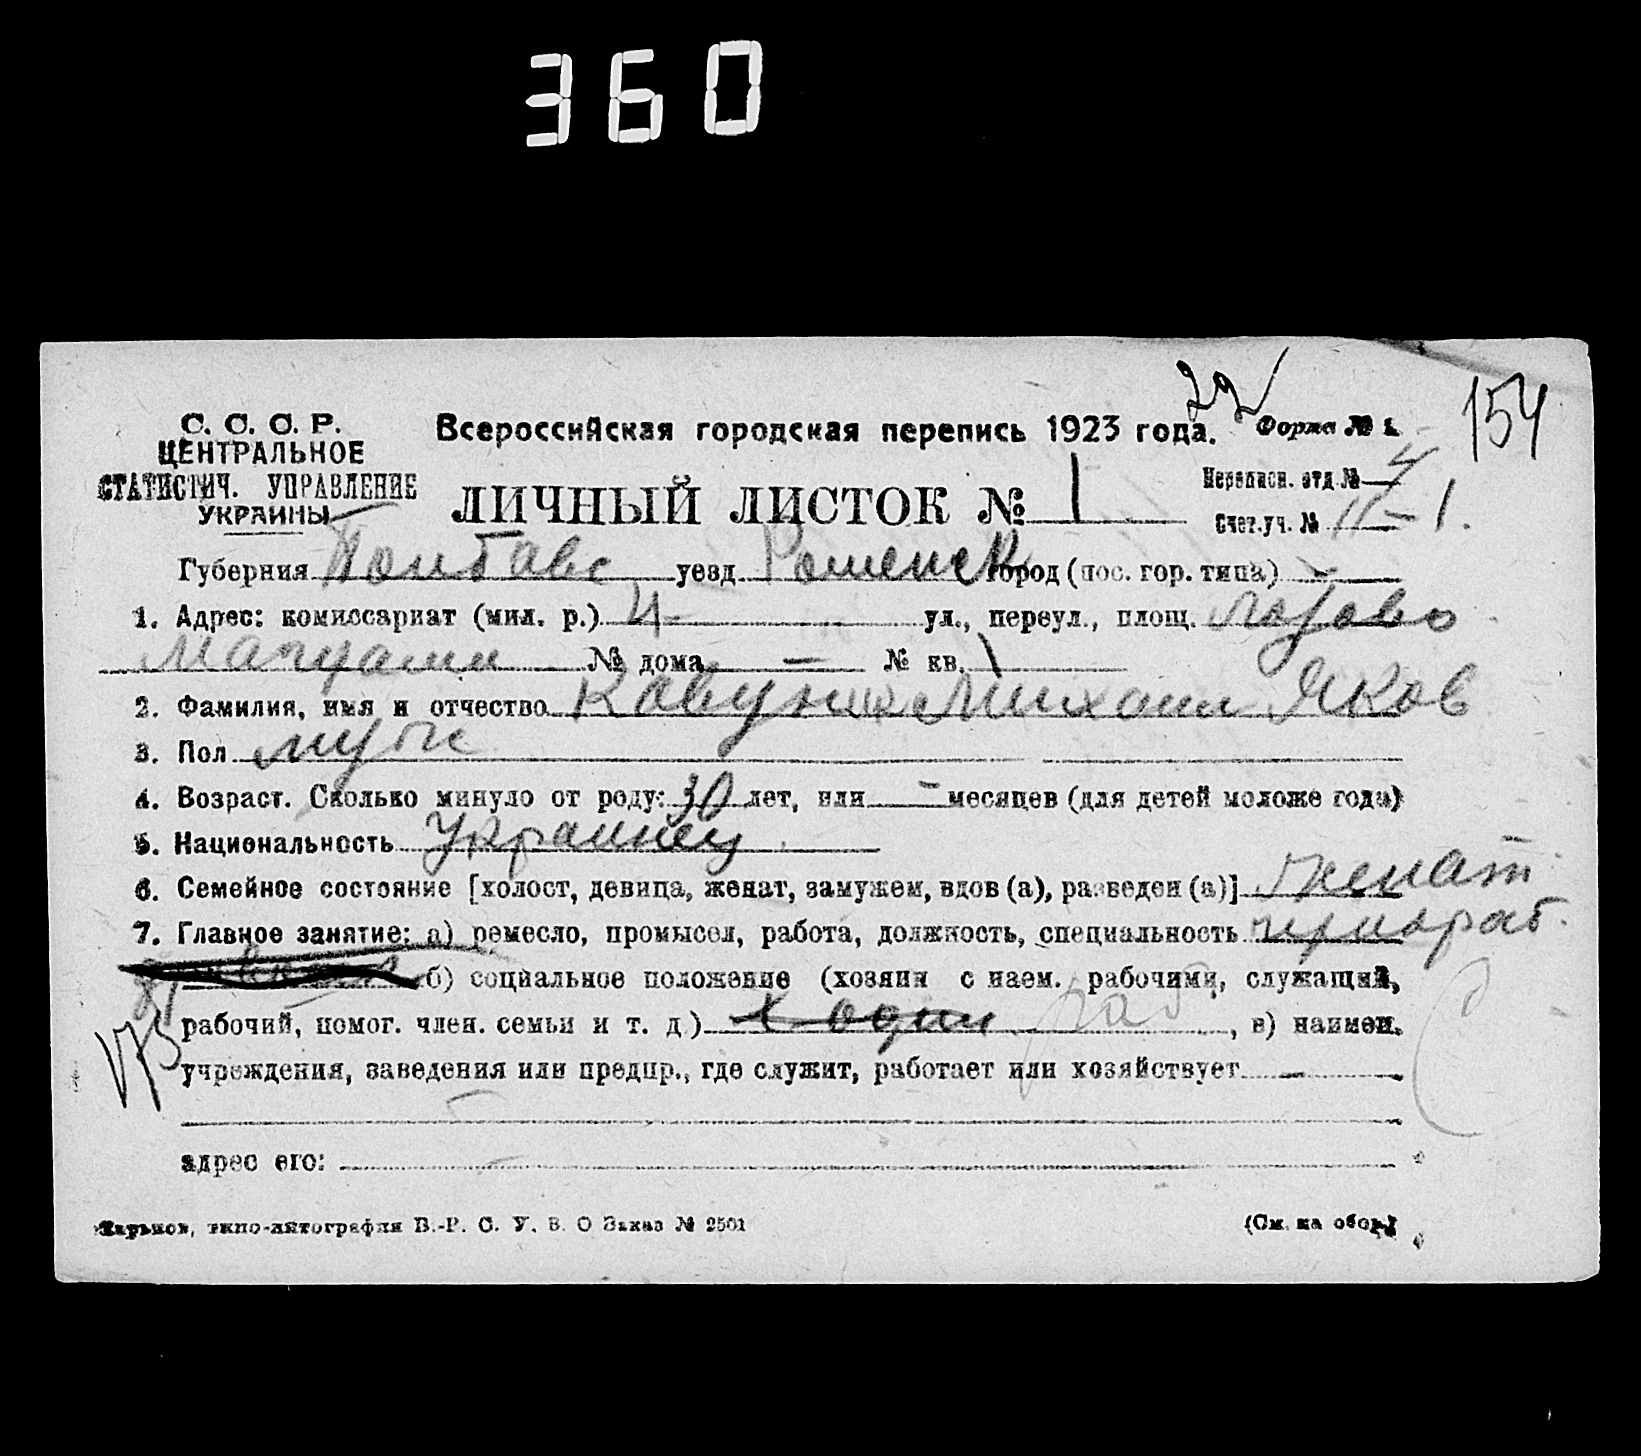 360
154
29
С. С. С. Р.
ЦЕНТРАЛЬНОЕ
СТАТИСТИЧ. УПРАВЛЕНИЕ
УКРАИНЫ
Всероссийская городская перепись 1923 года. Форма № 1.
ЛИЧНЫЙ ЛИСТОК № 1
Переписн. отд. № 4
Счет. уч. № 11-1.
Губерния Полтавс уезд Роменск город (пос. гор. типа) -
1. Адрес: комиссариат (мил. р.) 4 ул., переул., площ.
№ дома - № кв. 1
2. Фамилия, имя и отчество Михаил Яков
3. Пол муж
4. Возраст. Сколько минуло от роду: 30 лет, или - месяцев (для детей моложе года)
5. Национальность Украинец
6. Семейное состояние [холост, девица, женат, замужем, вдов (а), разведен (а)] женат
7. Главное занятие: а) ремесло, промысел, работа, должность, специальность
б) социальное положение (хозяин с наем. рабочими, служащий,
рабочий, помог. член. семьи и т. д.) х один раб, в) наимен.
учреждения, заведения или предпр., где служит, работает или хозяйствует -
адрес его:
Харьков, типо-литография В.-Р. С. У. В. О Заказ № 2501
(См. на обор.)